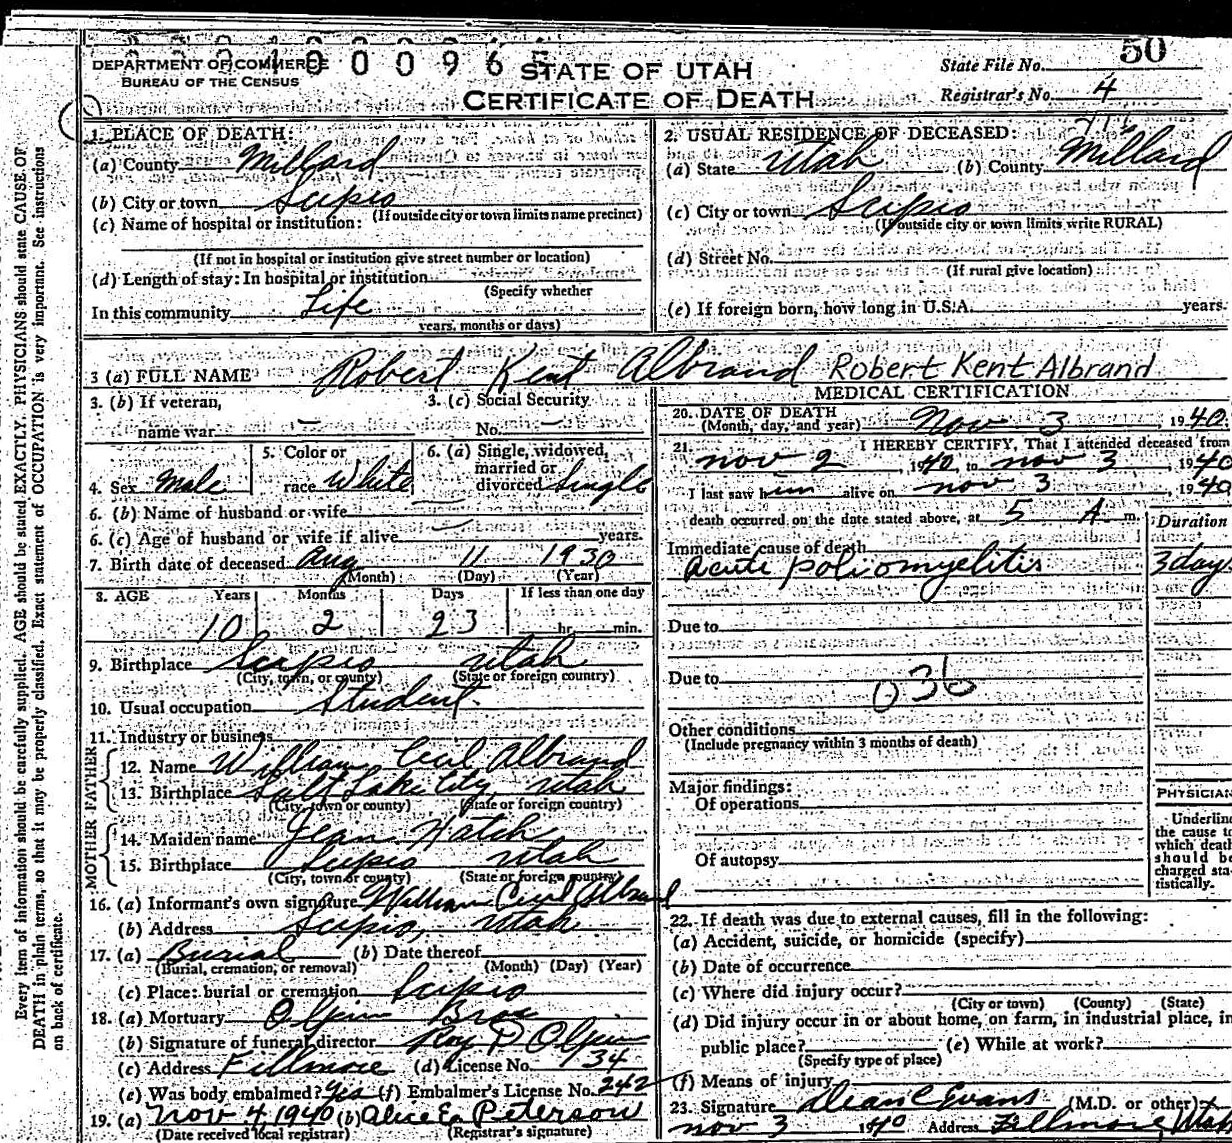 DEPARTMENT OF COMMERCE
BUREAU OF THE CENSUS
STATE OF UTAH
CERTIFICATE OF DEATH
State File No. 50
Registrar's No. 4
1. PLACE OF DEATH:
(a) County Millard
(b) City or town Scipio
(If outside city or town limits name precinct)
(c) Name of hospital or institution:
(If not in hospital or institution give street number or location)
(d) Length of stay: In hospital or institution
(Specify whether
In this community Life
years, months or days)
2. USUAL RESIDENCE OF DECEASED:
(a) State Utah (b) County Millard
(c) City or town Scipio
(If outside city or town limits write RURAL)
(d) Street No.
(If rural give location)
(e) If foreign born, how long in U.S.A. years
3 (a) FULL NAME Robert Kent Albrand Robert Kent Albrand
3. (b) If veteran,
name war —
3. (c) Social Security
No. —
4. Sex Male
5. Color or
race White
6. (a) Single, widowed,
married or
divorced Single
6. (b) Name of husband or wife
6. (c) Age of husband or wife if alive years.
7. Birth date of deceased Aug 11 1930
(Month) (Day) (Year)
8. AGE Years Months Days If less than one day
10 2 23 hr. min.
9. Birthplace Scipio Utah
(City, town, or county) (State or foreign country)
10. Usual occupation Student
11. Industry or business
FATHER
12. Name William Cecil Albrand
13. Birthplace Salt Lake City, Utah
(City, town or county) (State or foreign country)
MOTHER
14. Maiden name Jean Hatch
15. Birthplace Scipio Utah
(City, town or county) (State or foreign country)
16. (a) Informant's own signature William Cecil Albrand
(b) Address Scipio, Utah
17. (a) Burial (b) Date thereof
(Burial, cremation, or removal) (Month) (Day) (Year)
(c) Place: burial or cremation Scipio
18. (a) Mortuary Olpin Bros
(b) Signature of funeral director Roy D Olpin
(c) Address Fillmore (d) License No. 34
(e) Was body embalmed? Yes (f) Embalmer's License No. 242
19. (a) Nov 4, 1940 (b) Alice E. Peterson
(Date received local registrar) (Registrar's signature)
MEDICAL CERTIFICATION
20. DATE OF DEATH
(Month, day, and year) Nov 3, 1940
21. I HEREBY CERTIFY, That I attended deceased from
nov 2, 1940, to nov 3, 1940
I last saw him alive on nov 3, 1940
death occurred on the date stated above, at 5 A m.
Duration
Immediate cause of death
Acute poliomyelitis 3 days
Due to
Due to
036
Other conditions
(Include pregnancy within 3 months of death)
Major findings:
Of operations
Of autopsy
PHYSICIAN
Underline
the cause to
which death
should be
charged sta-
tistically.
22. If death was due to external causes, fill in the following:
(a) Accident, suicide, or homicide (specify)
(b) Date of occurrence
(c) Where did injury occur?
(City or town) (County) (State)
(d) Did injury occur in or about home, on farm, in industrial place, in
public place? (e) While at work?
(Specify type of place)
(f) Means of injury
23. Signature Dean C Evans (M.D. or other)
nov 3 1940 Address Fillmore Utah
Every item of information should be carefully supplied. AGE should be stated EXACTLY. PHYSICIANS should state CAUSE OF
DEATH in plain terms, so that it may be properly classified. Exact statement of OCCUPATION is very important. See instructions
on back of certificate.